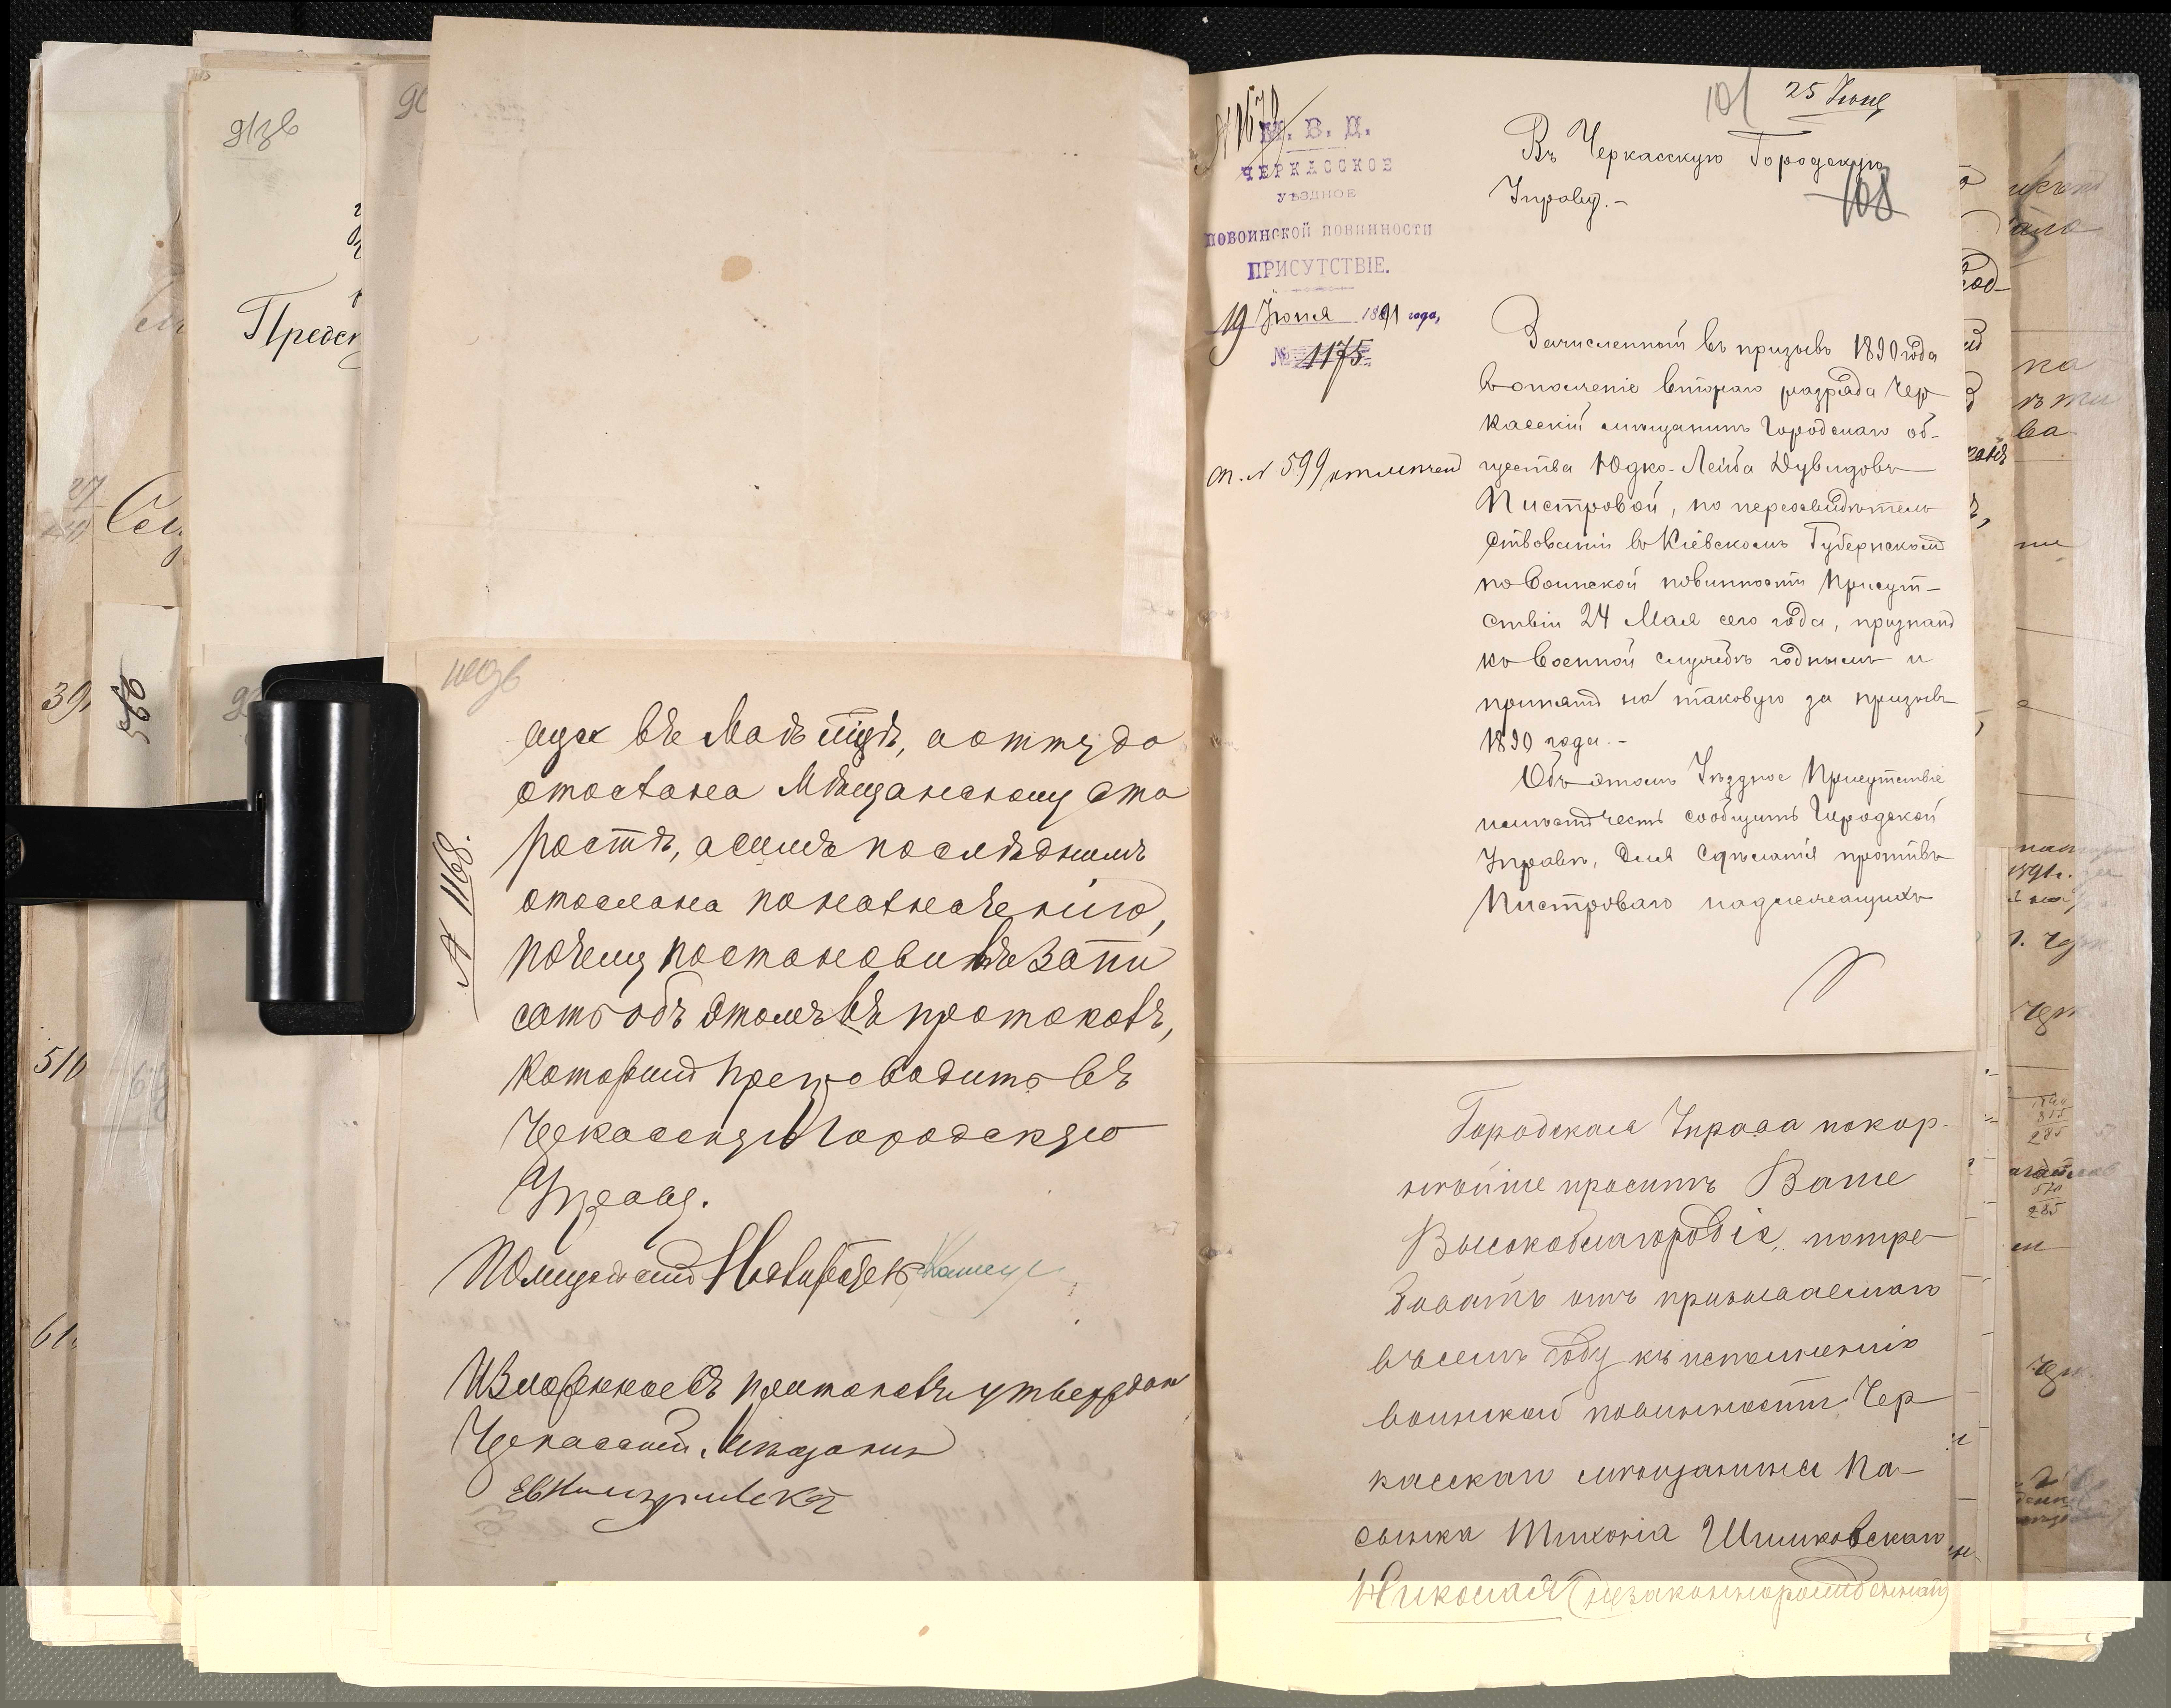 91зв
Предс
390
560
510
100зв
отослана Мѣщанскому Ста
ростѣ, а симъ послѣднимъ
отослана по назначенію,
почему постановилъ запи
сать объ этомъ въ протоколъ,
который препроводить въ
Черкасскую Городскую
Управу.
№ 1168.
Изложенное въ протоколѣ утвердилъ
Черкасский Мѣщанин
101
25 Июня
108
М. В. Д.
ЧЕРКАССКОЕ
УѢЗДНОЕ
ПО ВОИНСКОЙ ПОВИННОСТИ
ПРИСУТСТВІЕ.
19 Іюня 1891 года,
№ 1175
ст. № 599 отмѣтчен
Въ Черкасскую Городскую
Управу.-
Зачисленный въ призывъ 1890 года
въ ополченіе втораго разряда Чер
касскій мѣщанинъ Городскаго об-
щества Юдко-Лейба Дувидовъ
Пистровой, по переосвидѣтель
ствованіи въ Кіевскомъ Губернскомъ
по воинской повинности Присут-
ствіи 24 Мая сего года, признанъ
къ военной службѣ годнымъ и
принятъ на таковую за призывъ
1890 года.-
Объ этомъ Уѣздное Присутствіе
имѣетъ честь сообщить Городской
Управѣ, для сдѣланія противъ
Пистроваго надлежащихъ
Городская Управа покор-
нѣйше проситъ Ваше
Высокоблагородіе, потре
бовать отъ призываемаго
въ семъ году къ исполненію
воинской повинности Чер
касскаго мѣщанина Па-
сынка Тихона Шишковскаго
Николая (незаконнорожденный)